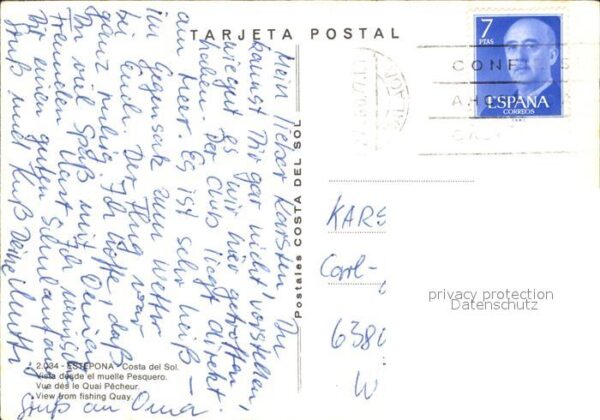 TARJETA POSTAL
7
PTAS
ESPAÑA
CORREOS
Mein lieber Karsten! Du
kannst Dir gar nicht vorstellen,
wie gut es wir hier getroffen
haben. Der Club liegt direkt
am Meer. Es ist sehr heiß –
im Gegensatz zum Wetter
bei Euch. Der Flug war
ganz ruhig. Ich hoffe, daß
Du viel Spaß mit Deinen
Freunden hast. Ich wünsche
Dir einen guten Schulanfang
Gruß und Kuß Deine Mutti
Gruß an Oma
Postales COSTA DEL SOL
KARS
Carl-
638
W
privacy protection
Datenschutz
2.034 - ESTEPONA - Costa del Sol.
Vista desde el muelle Pesquero.
Vue dés le Quai Pêcheur.
View from fishing Quay.